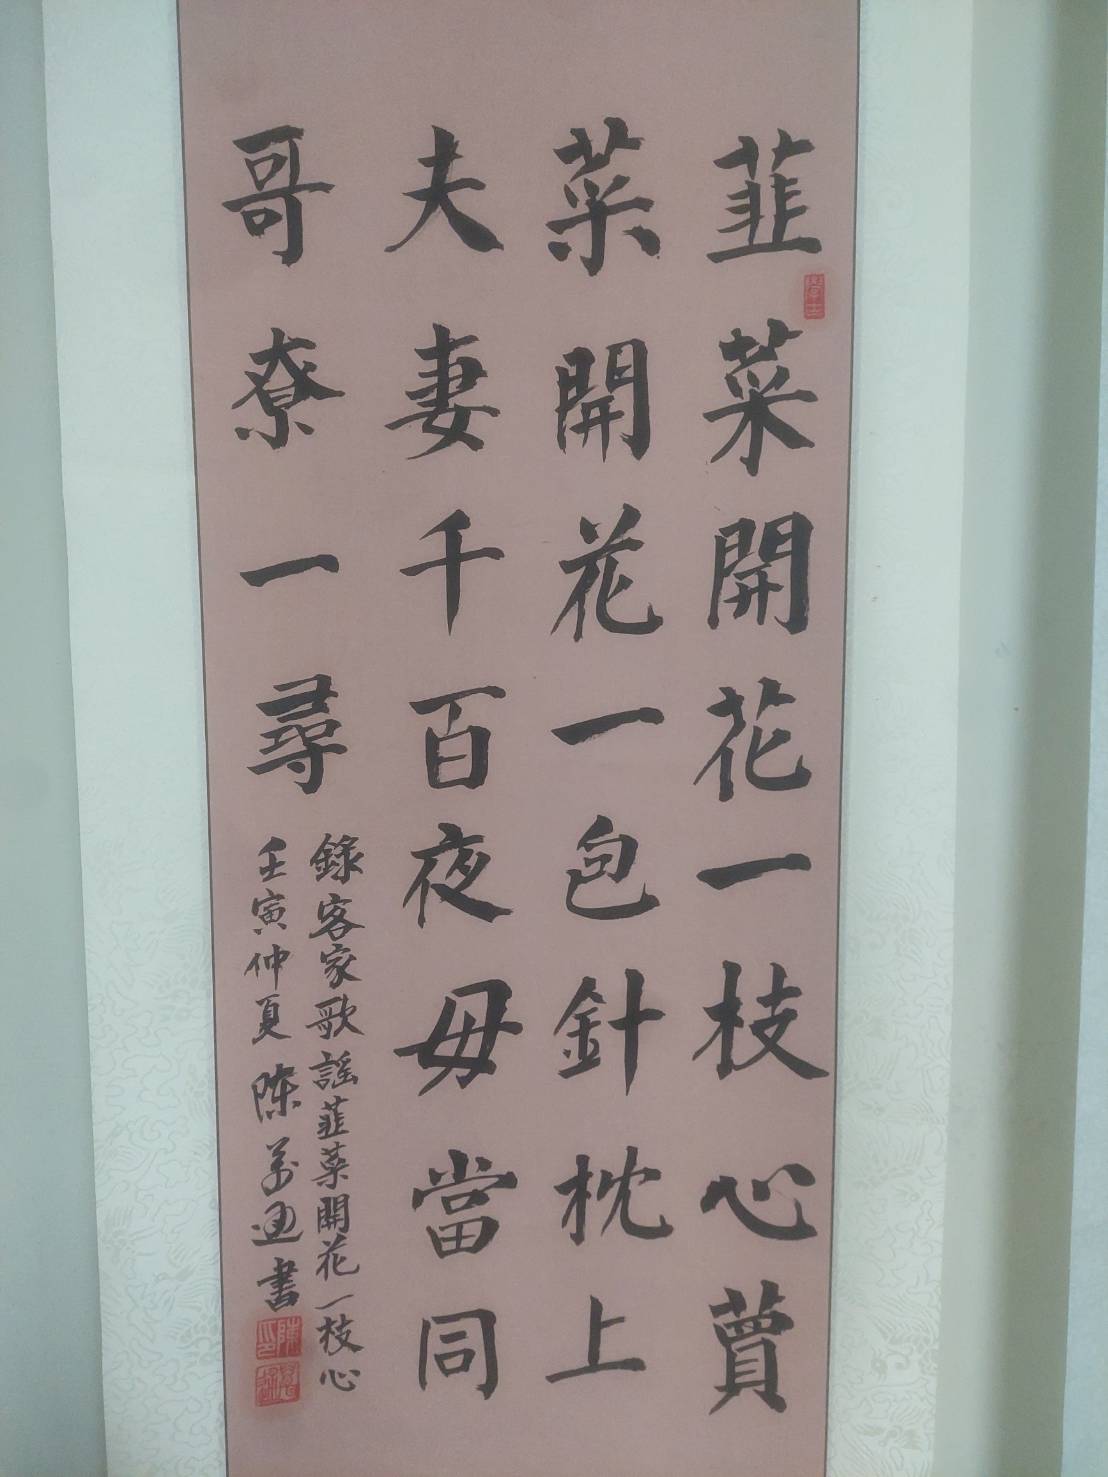 韮菜開花一枝心蕒
菜開花一包針枕上
夫妻千百夜毋當同
哥尞一尋
錄客家歌謠韮菜開花一枝心
壬寅仲夏 陳萬通書